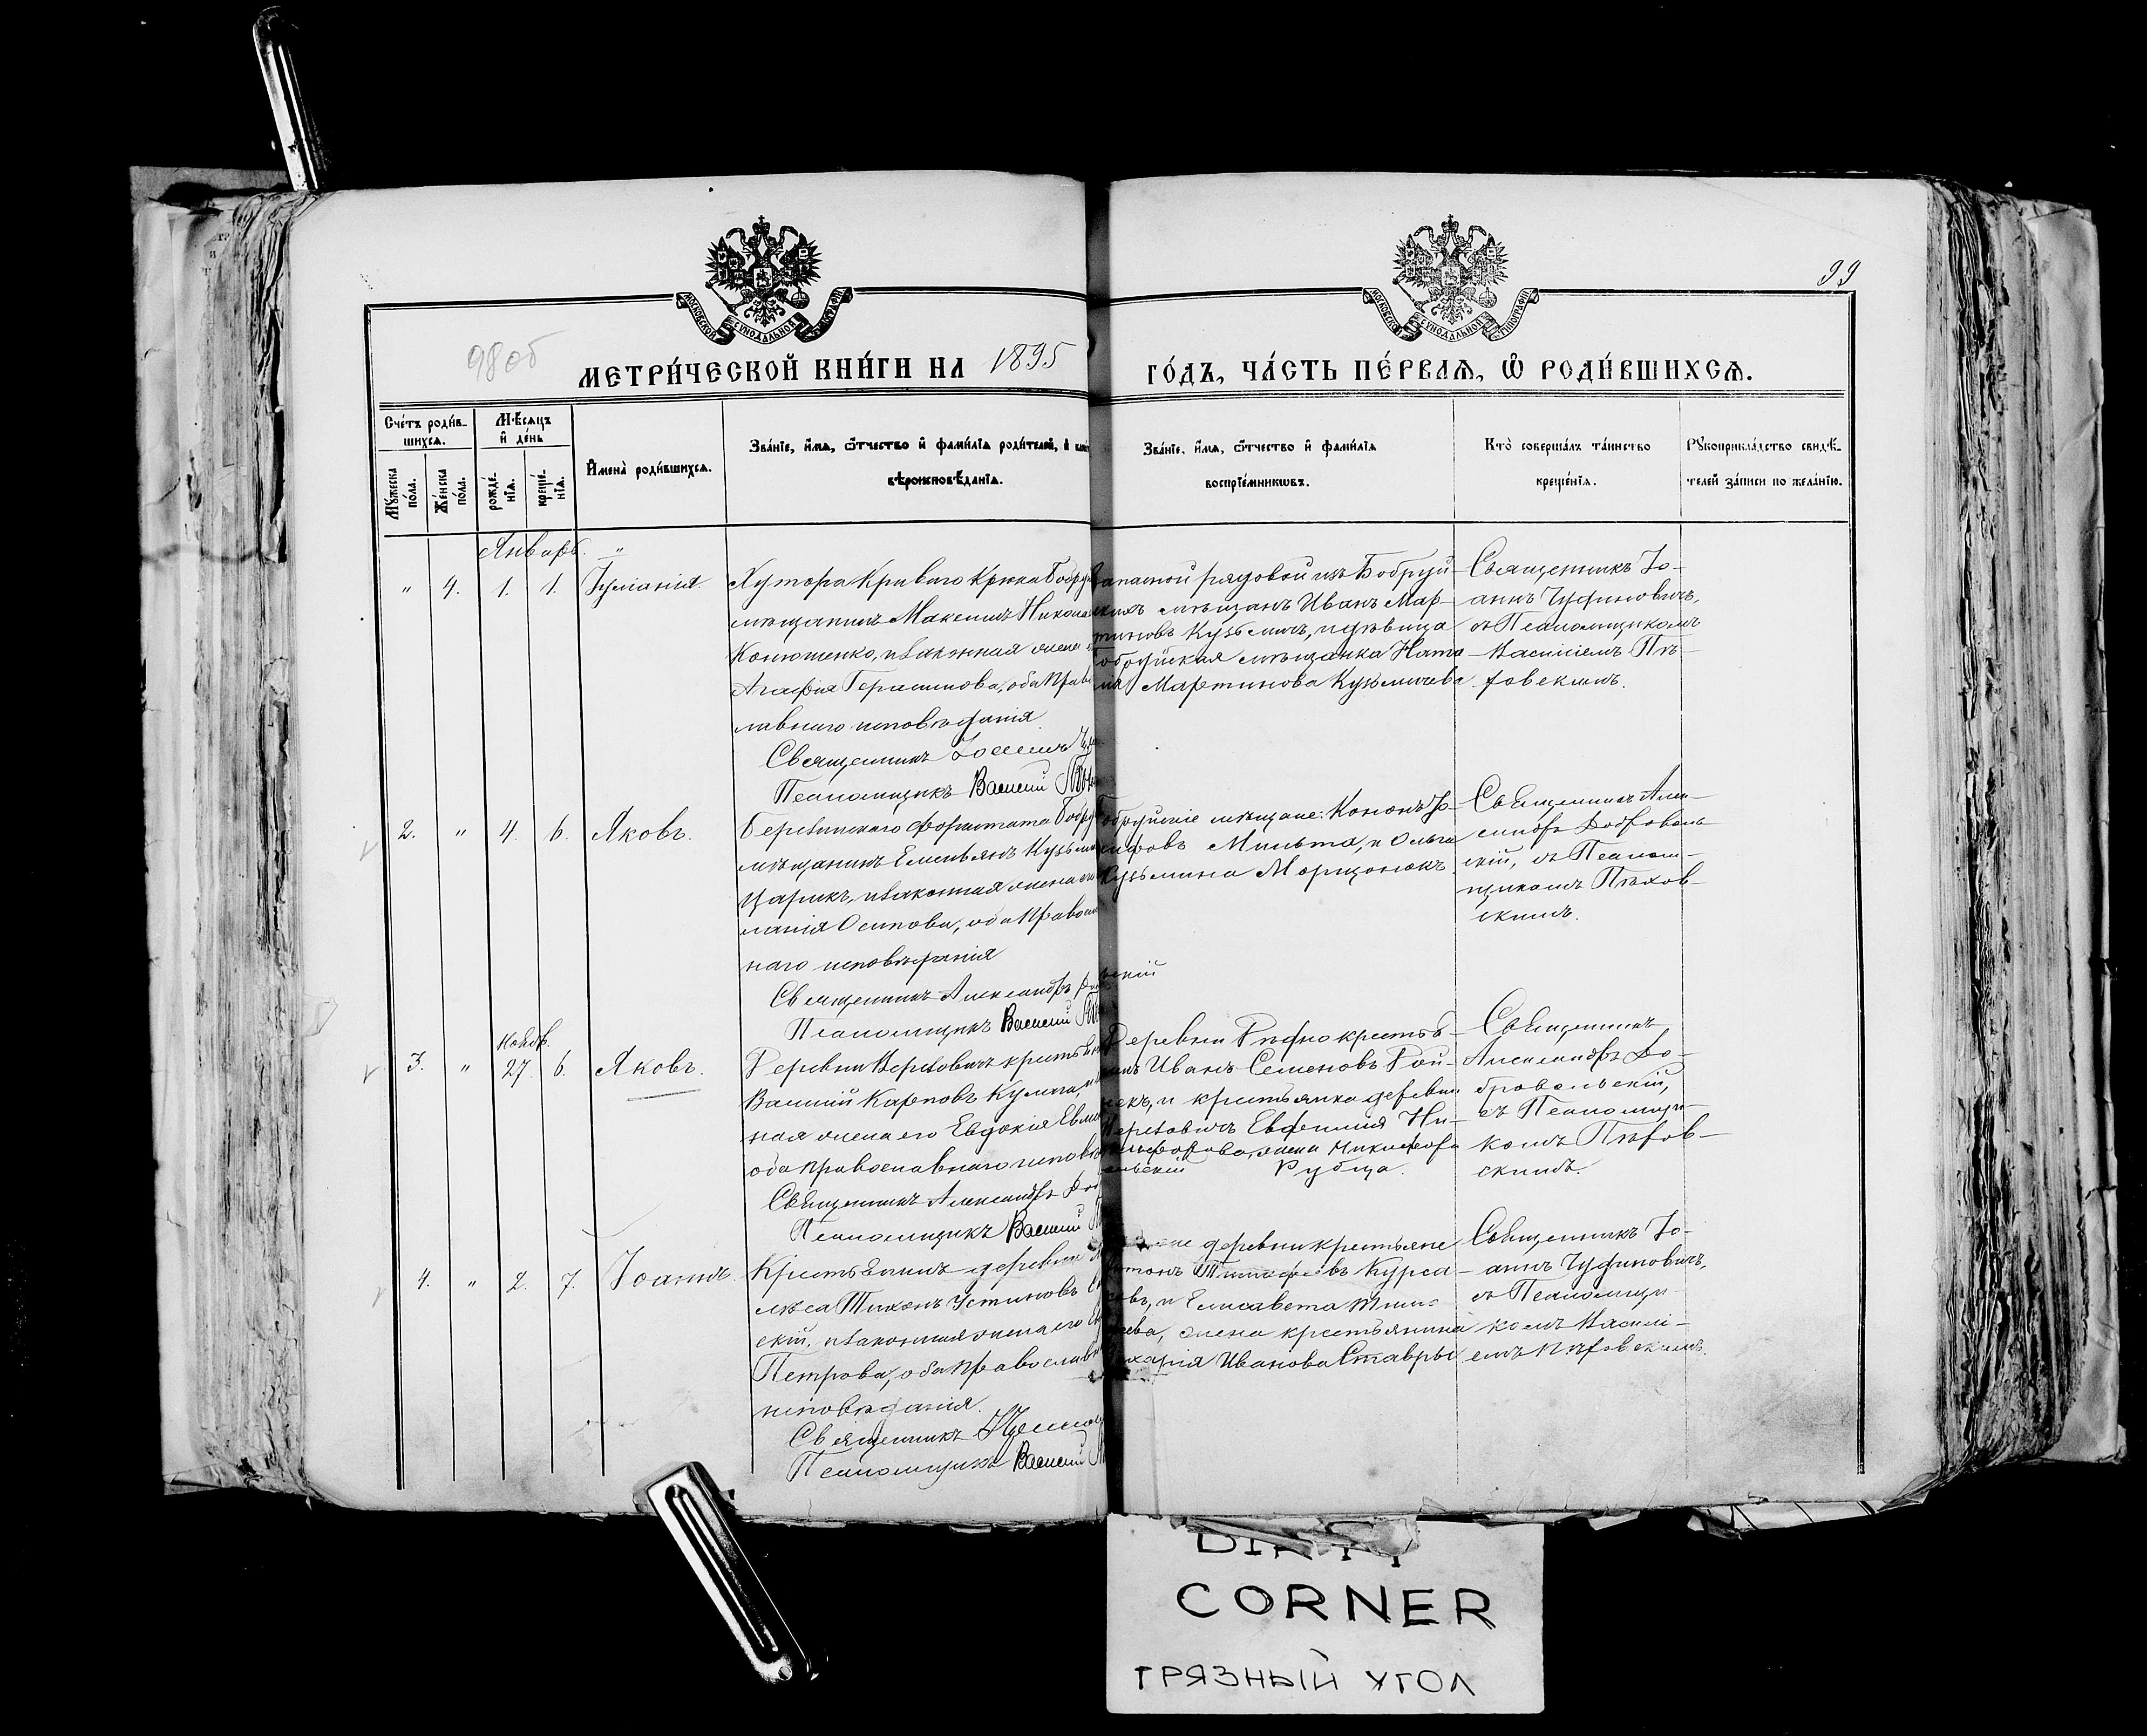 99
98 об
МОСКОВСКОЙ СѴНОДАЛЬНОЙ ТИПОГРАФІИ
МОСКОВСКОЙ СѴНОДАЛЬНОЙ ТИПОГРАФІИ
МЕТРИ́ЧЕСКОЙ КНИ́ГИ НА 1895
ГО́ДЪ, ЧА́СТЬ ПЕ́РВАѦ, Ѡ҆ РОДИ́ВШИХСѦ.
Сче́тъ роди́в-
шихсѧ.
Мꙋ́жеска по́ла.
Же́нска по́ла.
Мѣ́сѧцъ
и҆ де́нь
рожде́-
нїѧ.
креще́-
нїѧ.
И҆мена̀ роди́вшихсѧ.
Зва́нїе, и҆́мѧ, ѻ҆́тчество и҆ фами́лїѧ роди́телей, и҆
вѣроисповѣ́данїѧ.
Зва́нїе, и҆́мѧ, ѻ҆́тчество и҆ фами́лїѧ
воспрїе́мникѡвъ.
Кто̀ соверша́лъ та́инство
креще́нїѧ.
Рꙋкоприкла́дство свидѣ́-
телей за́писи по жела́нїю.
Январь. "
" 4. 1. 1. Іуліанія.
Хутора Криваго Крюка Бобру
мѣщанинъ Максимъ Никола
Конюшенко, и законная жена
Агафія Герасимова, оба Право
лавнаго исповѣданія.
Священникъ
Псаломщикъ Василій
Запасной рядовой изъ Бобруй-
скихъ мѣщанъ Иванъ Мар-
тиновъ Кузьмичъ, и дѣвица
Бобруйская мѣщанка Ната-
лія Мартинова Кузьмичева.
Священникъ Іо-
аннъ Чудиновичъ,
съ Псаломщикомъ
Василіемъ Пѣ-
ховскимъ.
2. " 4. 6. Яковъ.
Березинскаго форштата Бобру
мѣщанинъ Емельянъ Кузьми
Царикъ, и законная жена его
манія Осипова, оба Правосла
наго исповѣданія
Священникъ Александръ Добровольскій
Псаломщикъ Василій
Бобруйскіе мѣщане: Кононъ Іо-
сифовъ Мильто, и Ольга
Кузьмина Морцонюкъ.
Священникъ Алек-
сандръ Доброволь-
скій, съ Псалом-
щикомъ Пѣхов-
скимъ.
Ноябр.
3. " 27. 6. Яковъ.
Деревни Верховичъ крестьян
Василій Карповъ Кулага, и
ная жена его Евдокія
оба православнаго исповѣ
Священникъ Александръ Добровольскій
Псаломщикъ Василій
Деревни Рудно крестья-
нинъ Иванъ Семеновъ Рой-
секъ, и крестьянка деревни
Верховичъ Евфимія Ни-
кифорова, жена Никифора
Рубца.
Священникъ
Александръ До-
бровольскій,
съ Псаломщи-
комъ Пѣхов-
скимъ.
4. " 2. 7. Іоаннъ.
Крестьянинъ деревни
лѣса Тихонъ Устиновъ
скій, и законная жена его
Петрова, оба Православн
исповѣданія.
Священникъ
Псаломщикъ Василій
деревни крестьяне
Курса-
овъ, и Елисавета
ева, жена крестьянина
Захарія Иванова Ставры
Священникъ Іо-
аннъ Чудиновичъ,
съ Псаломщи-
комъ Васили-
емъ Пѣховскимъ.
DIRTY
CORNER
ГРЯЗНЫЙ УГОЛ